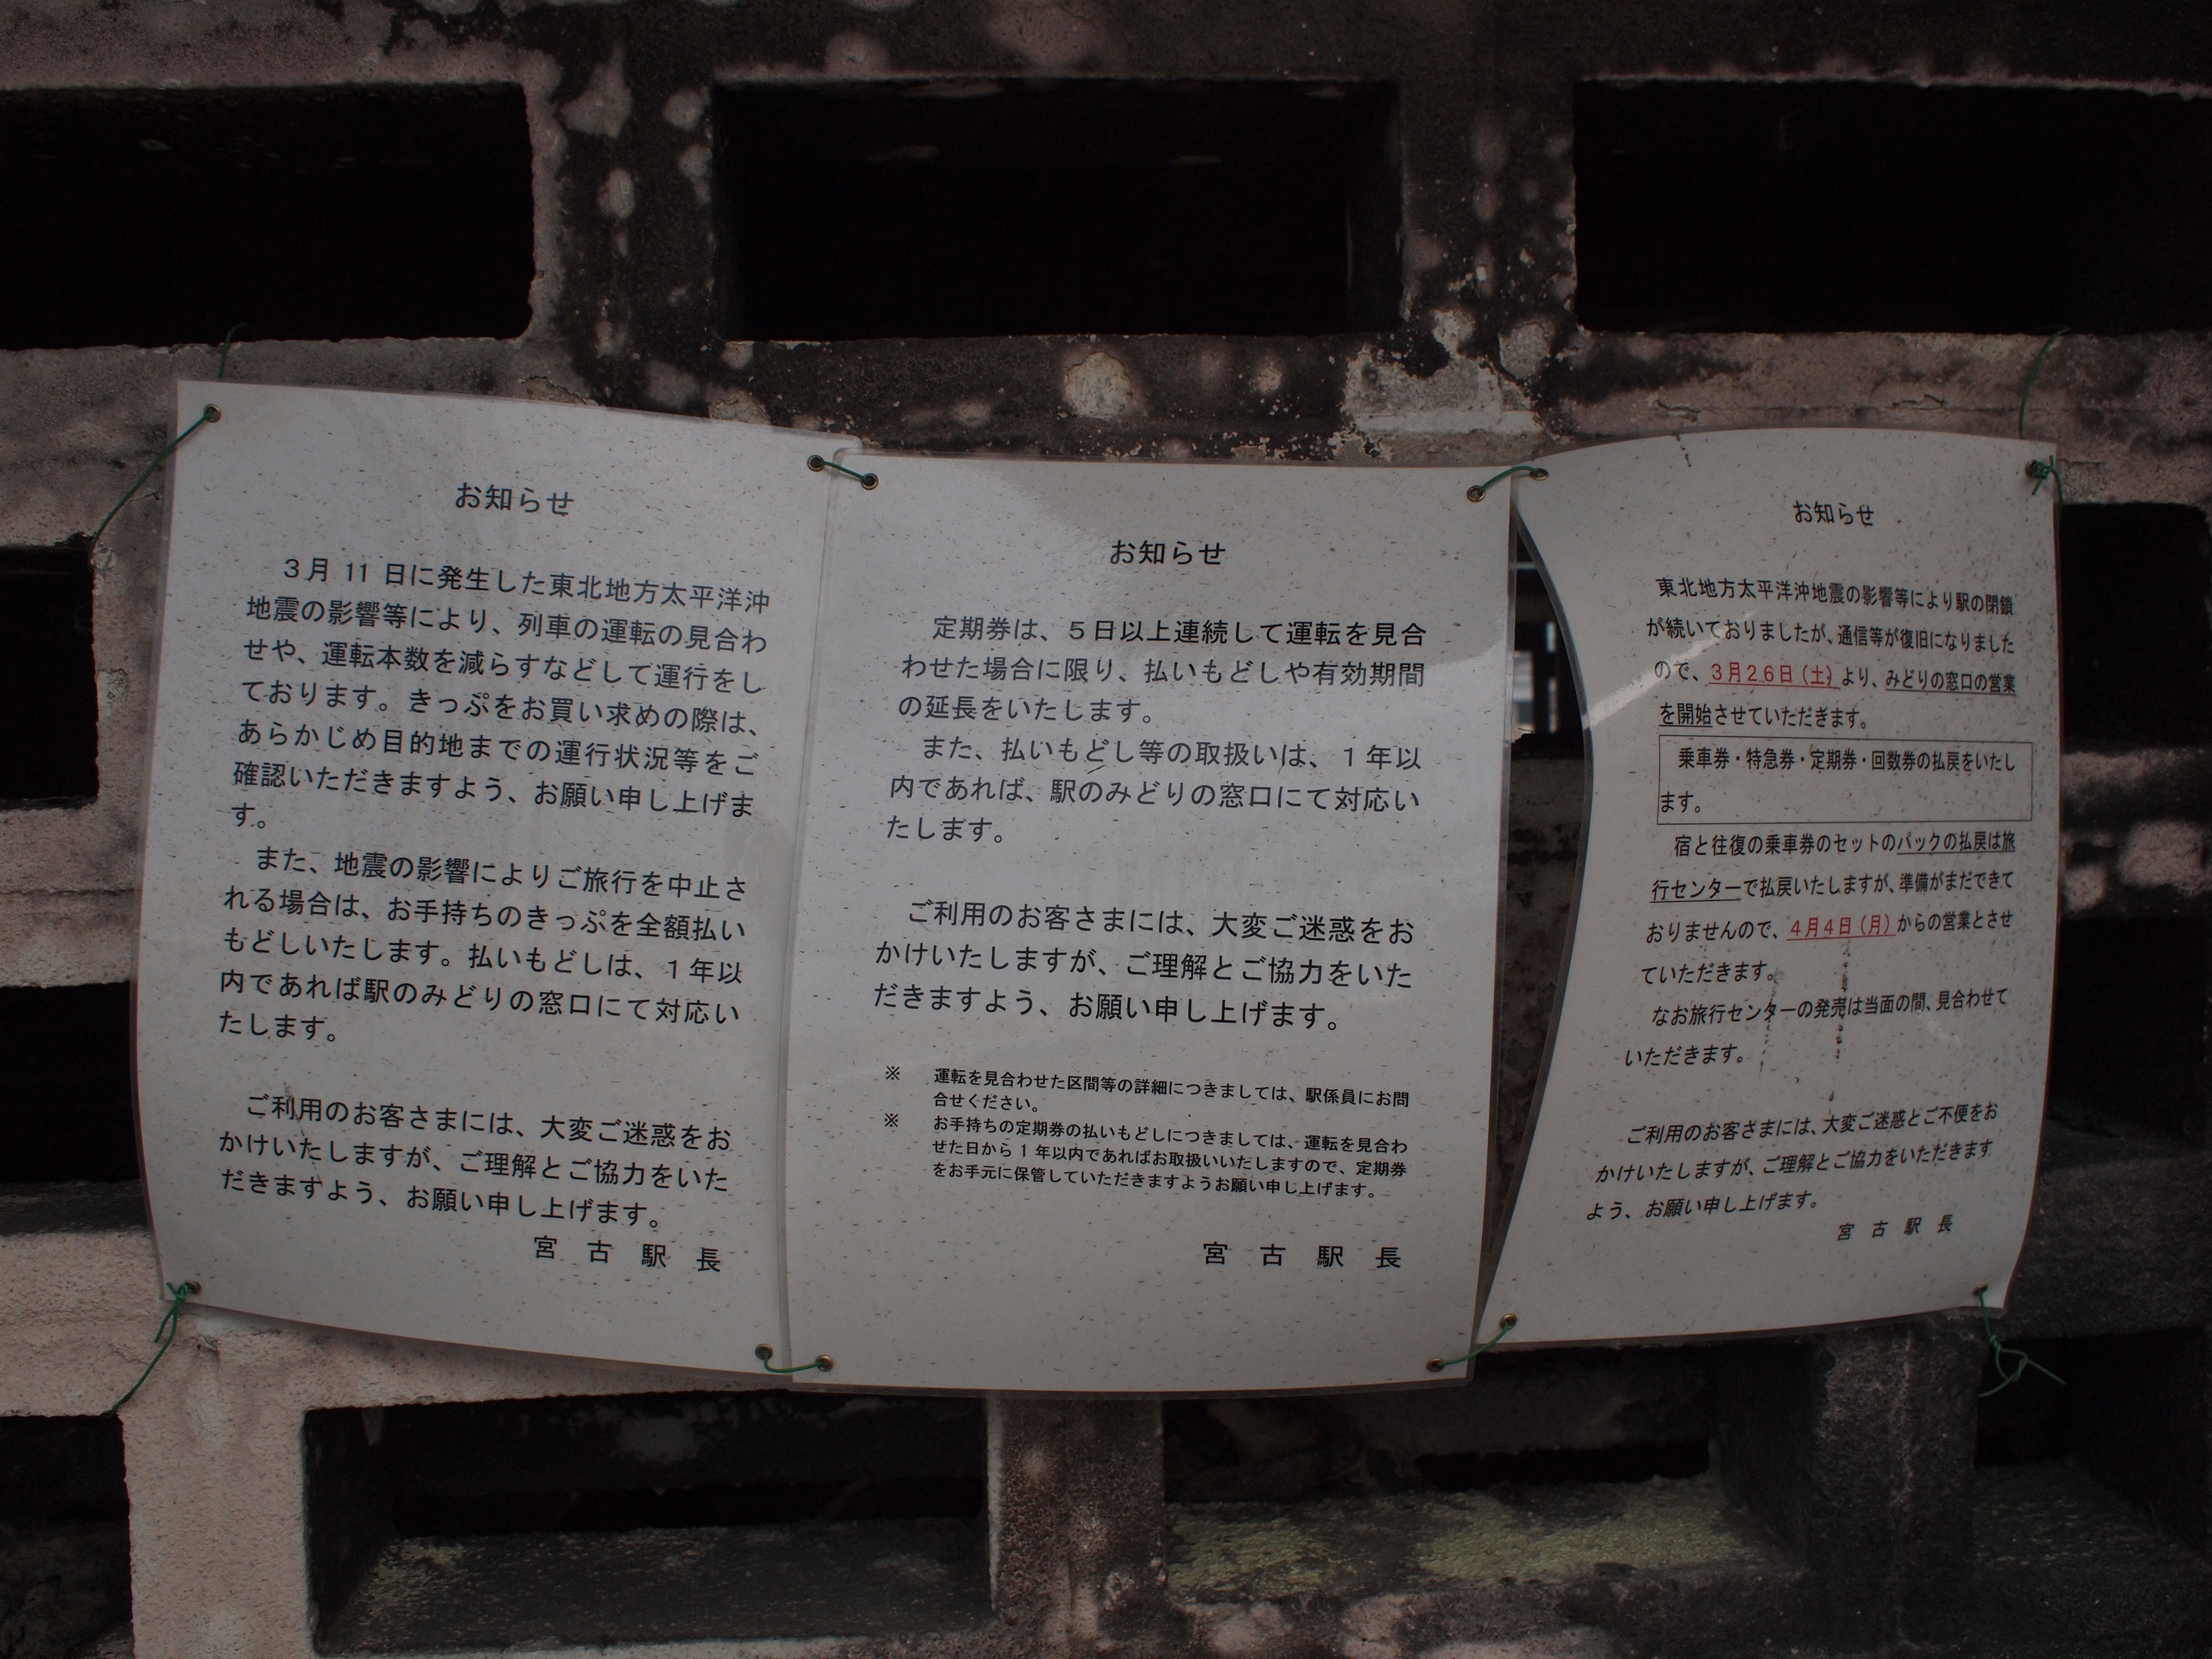 お知らせ
３月 11 日に発生した東北地方太平洋沖
地震の影響等により、列車の運転の見合わ
せや、運転本数を減らすなどして運行をし
ております。きっぷをお買い求めの際は、
あらかじめ目的地までの運行状況等をご
確認いただきますよう、お願い申し上げま
す。
また、地震の影響によりご旅行を中止さ
れる場合は、お手持ちのきっぷを全額払い
もどしいたします。払いもどしは、１年以
内であれば駅のみどりの窓口にて対応い
たします。
ご利用のお客さまには、大変ご迷惑をお
かけいたしますが、ご理解とご協力をいた
だきますよう、お願い申し上げます。
宮 古 駅 長
お知らせ
定期券は、５日以上連続して運転を見合
わせた場合に限り、払いもどしや有効期間
の延長をいたします。
また、払いもどし等の取扱いは、１年以
内であれば、駅のみどりの窓口にて対応い
たします。
ご利用のお客さまには、大変ご迷惑をお
かけいたしますが、ご理解とご協力をいた
だきますよう、お願い申し上げます。
※ 運転を見合わせた区間等の詳細につきましては、駅係員にお問
合せください。
※ お手持ちの定期券の払いもどしにつきましては、運転を見合わ
せた日から１年以内であればお取扱いいたしますので、定期券
をお手元に保管していただきますようお願い申し上げます。
宮 古 駅 長
お知らせ
東北地方太平洋沖地震の影響等により駅の閉鎖
が続いておりましたが、通信等が復旧になりました
ので、３月２６日（土）より、みどりの窓口の営業
を開始させていただきます。
乗車券・特急券・定期券・回数券の払戻をいたし
ます。
宿と往復の乗車券のセットのパックの払戻は旅
行センターで払戻いたしますが、準備がまだできて
おりませんので、４月４日（月）からの営業とさせ
ていただきます。
なお旅行センターの発売は当面の間、見合わせて
いただきます。
ご利用のお客さまには、大変ご迷惑とご不便をお
かけいたしますが、ご理解とご協力をいただきます
よう、お願い申し上げます。
宮 古 駅 長